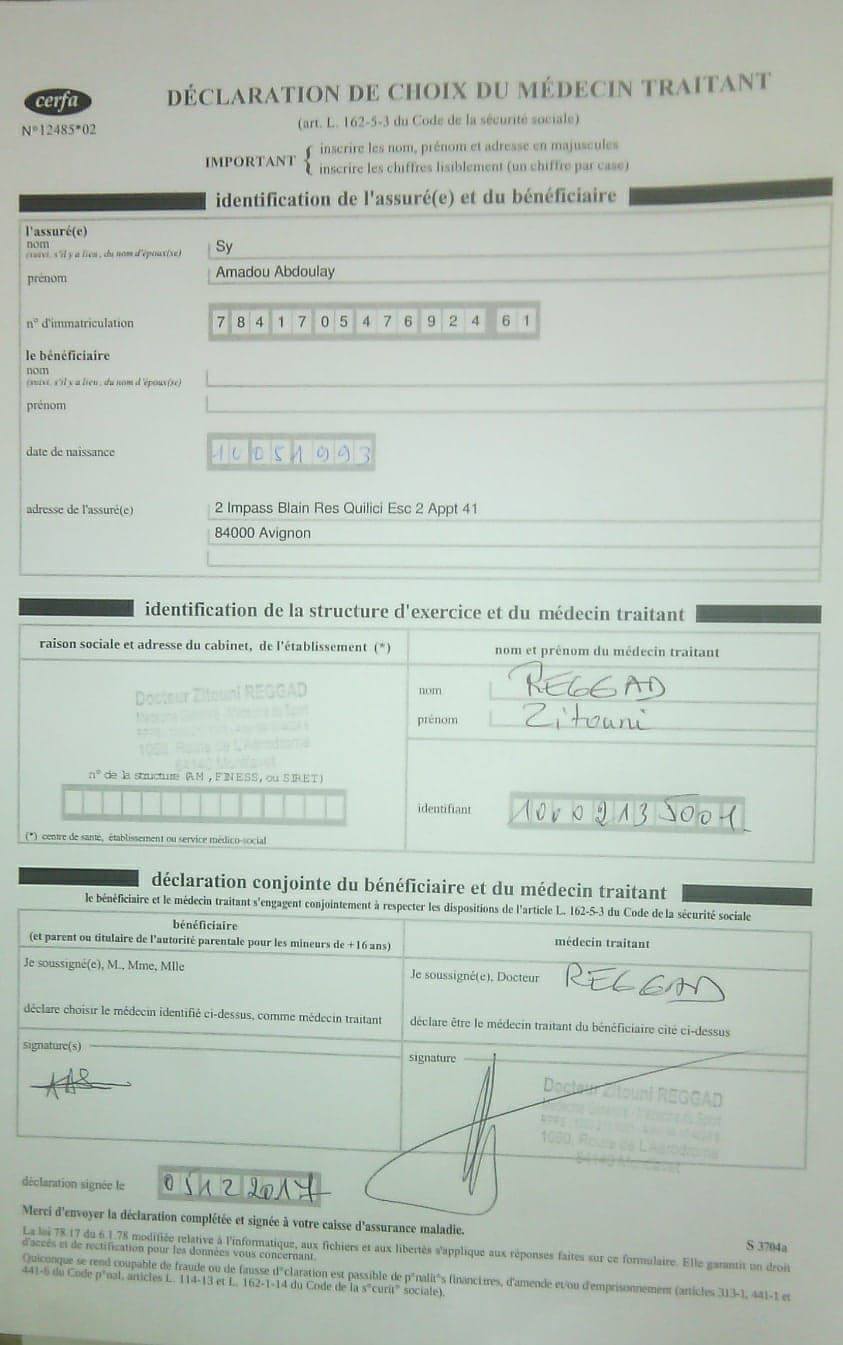 cerfa
N° 12485*02
DÉCLARATION DE CHOIX DU MÉDECIN TRAITANT
(art. L. 162-5-3 du Code de la sécurité sociale)
IMPORTANT { inscrire les nom, prénom et adresse en majuscules
inscrire les chiffres lisiblement (un chiffre par case)
identification de l'assuré(e) et du bénéficiaire
l'assuré(e)
nom Sy
(suivi, s'il y a lieu, du nom d'époux(se)
prénom Amadou Abdoulay
n° d'immatriculation 7 8 4 1 7 0 5 4 7 6 9 2 4 6 1
le bénéficiaire
nom
(suivi, s'il y a lieu, du nom d'époux(se)
prénom
date de naissance 10051993
adresse de l'assuré(e) 2 Impass Blain Res Quilici Esc 2 Appt 41
84000 Avignon
identification de la structure d'exercice et du médecin traitant
raison sociale et adresse du cabinet, de l'établissement (*)
nom et prénom du médecin traitant
Docteur Zitouni REGGAD
1060, Route de L'Aérodrome
nom REGGAD
prénom Zitouni
n° de la structure (AM, FINESS, ou SIRET)
identifiant 10002135001
(*) centre de santé, établissement ou service médico-social
déclaration conjointe du bénéficiaire et du médecin traitant
le bénéficiaire et le médecin traitant s'engagent conjointement à respecter les dispositions de l'article L. 162-5-3 du Code de la sécurité sociale
bénéficiaire
(et parent ou titulaire de l'autorité parentale pour les mineurs de +16 ans)
médecin traitant
Je soussigné(e), M., Mme, Mlle
Je soussigné(e), Docteur REGGAD
déclare choisir le médecin identifié ci-dessus, comme médecin traitant
déclare être le médecin traitant du bénéficiaire cité ci-dessus
signature(s)
signature
Docteur Zitouni REGGAD
1060, Route de L'Aérodrome
déclaration signée le 05122017
Merci d'envoyer la déclaration complétée et signée à votre caisse d'assurance maladie.
S 3704a
La loi 78.17 du 6.1.78 modifiée relative à l'informatique, aux fichiers et aux libertés s'applique aux réponses faites sur ce formulaire. Elle garantit un droit
d'accès et de rectification pour les données vous concernant.
Quiconque se rend coupable de fraude ou de fausse d°claration est passible de p°nalit°s financières, d'amende et/ou d'emprisonnement (articles 313-1, 441-1 et
441-6 du Code p°nal, articles L. 114-13 et L. 162-1-14 du Code de la s°curit° sociale).